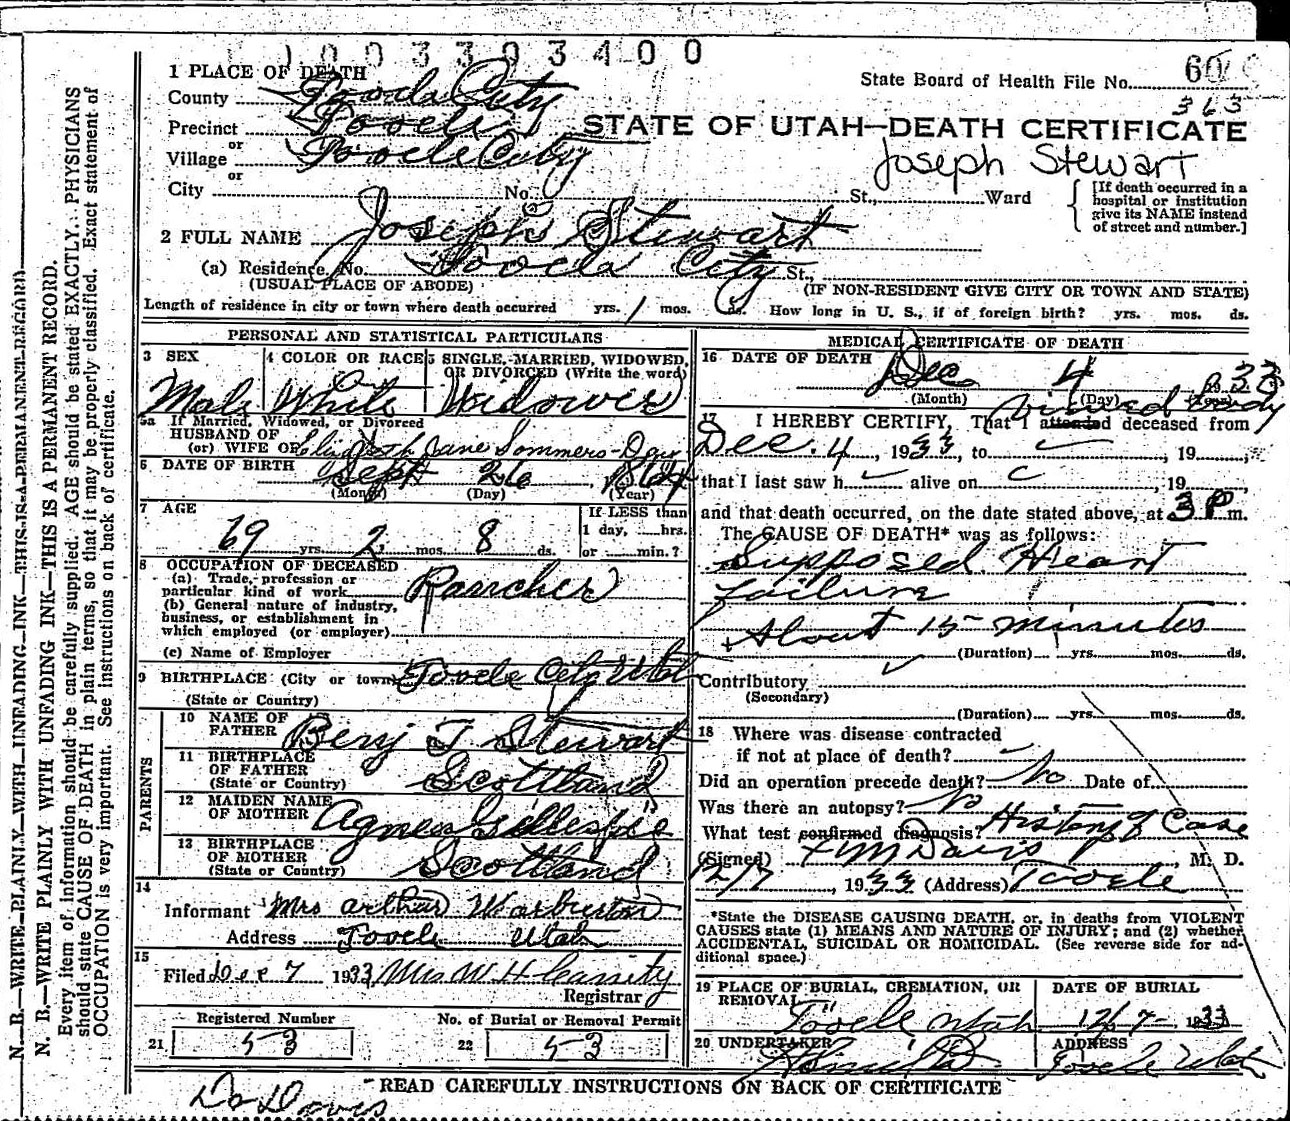 1003303400
1 PLACE OF DEATH
State Board of Health File No. 60
County Tooele City
363
Precinct Tooele
STATE OF UTAH—DEATH CERTIFICATE
or
Village Tooele City
Joseph Stewart
or
City No. St., Ward
[If death occurred in a
hospital or institution
give its NAME instead
of street and number.]
2 FULL NAME Joseph Stewart
(a) Residence, No. Tooele City St.,
(USUAL PLACE OF ABODE) (IF NON-RESIDENT GIVE CITY OR TOWN AND STATE)
Length of residence in city or town where death occurred yrs. mos. ds. How long in U. S., if of foreign birth? yrs. mos. ds.
PERSONAL AND STATISTICAL PARTICULARS
3 SEX 4 COLOR OR RACE 5 SINGLE, MARRIED, WIDOWED,
OR DIVORCED (Write the word)
Male White Widower
5a If Married, Widowed, or Divorced
HUSBAND OF
(or) WIFE OF Jane Sommers
6 DATE OF BIRTH Sept 26, 1864
(Month) (Day) (Year)
7 AGE
69 yrs. 2 mos. 8 ds.
If LESS than
1 day, hrs.
or min.?
8 OCCUPATION OF DECEASED
(a) Trade, profession or
particular kind of work Rancher
(b) General nature of industry,
business, or establishment in
which employed (or employer)
(c) Name of Employer
9 BIRTHPLACE (City or town) Tooele City Utah
(State or Country)
PARENTS
10 NAME OF
FATHER Benj T Stewart
11 BIRTHPLACE
OF FATHER
(State or Country) Scottland
12 MAIDEN NAME
OF MOTHER Agnes Gillespie
13 BIRTHPLACE
OF MOTHER
(State or Country) Scottland
14
Informant Mrs Arthur Warburton
Address Tooele Utah
15
Filed Dec 7 1933, Mrs W H Cassity
Registrar
Registered Number No. of Burial or Removal Permit
21 53 22 53
MEDICAL CERTIFICATE OF DEATH
16 DATE OF DEATH
Dec 4 33
(Month) (Day) (Year)
viewed body
17 I HEREBY CERTIFY, That I attended deceased from
Dec. 4, 1933, to , 19 ,
that I last saw h alive on , 19 ,
and that death occurred, on the date stated above, at 3 P m.
The CAUSE OF DEATH* was as follows:
Supposed Heart
Failure
About 15 minutes
(Duration) yrs. mos. ds.
Contributory
(Secondary)
(Duration) yrs. mos. ds.
18 Where was disease contracted
if not at place of death?
Did an operation precede death? No Date of
Was there an autopsy? No
What test confirmed diagnosis? History of Case
(Signed) M Davis, M. D.
12/7, 1933 (Address) Tooele
*State the DISEASE CAUSING DEATH, or, in deaths from VIOLENT
CAUSES state (1) MEANS AND NATURE OF INJURY; and (2) whether
ACCIDENTAL, SUICIDAL OR HOMICIDAL. (See reverse side for ad-
ditional space.)
19 PLACE OF BURIAL, CREMATION, OR
REMOVAL
DATE OF BURIAL
Tooele Utah 12/7- 1933
20 UNDERTAKER ADDRESS
Tooele Utah
READ CAREFULLY INSTRUCTIONS ON BACK OF CERTIFICATE
Dr Davis
N. B.—WRITE PLAINLY WITH UNFADING INK—THIS IS A PERMANENT RECORD.
N. B.—WRITE PLAINLY WITH UNFADING INK—THIS IS A PERMANENT RECORD.
Every item of information should be carefully supplied. AGE should be stated EXACTLY. PHYSICIANS
should state CAUSE OF DEATH in plain terms, so that it may be properly classified. Exact statement of
OCCUPATION is very important. See instructions on back of certificate.